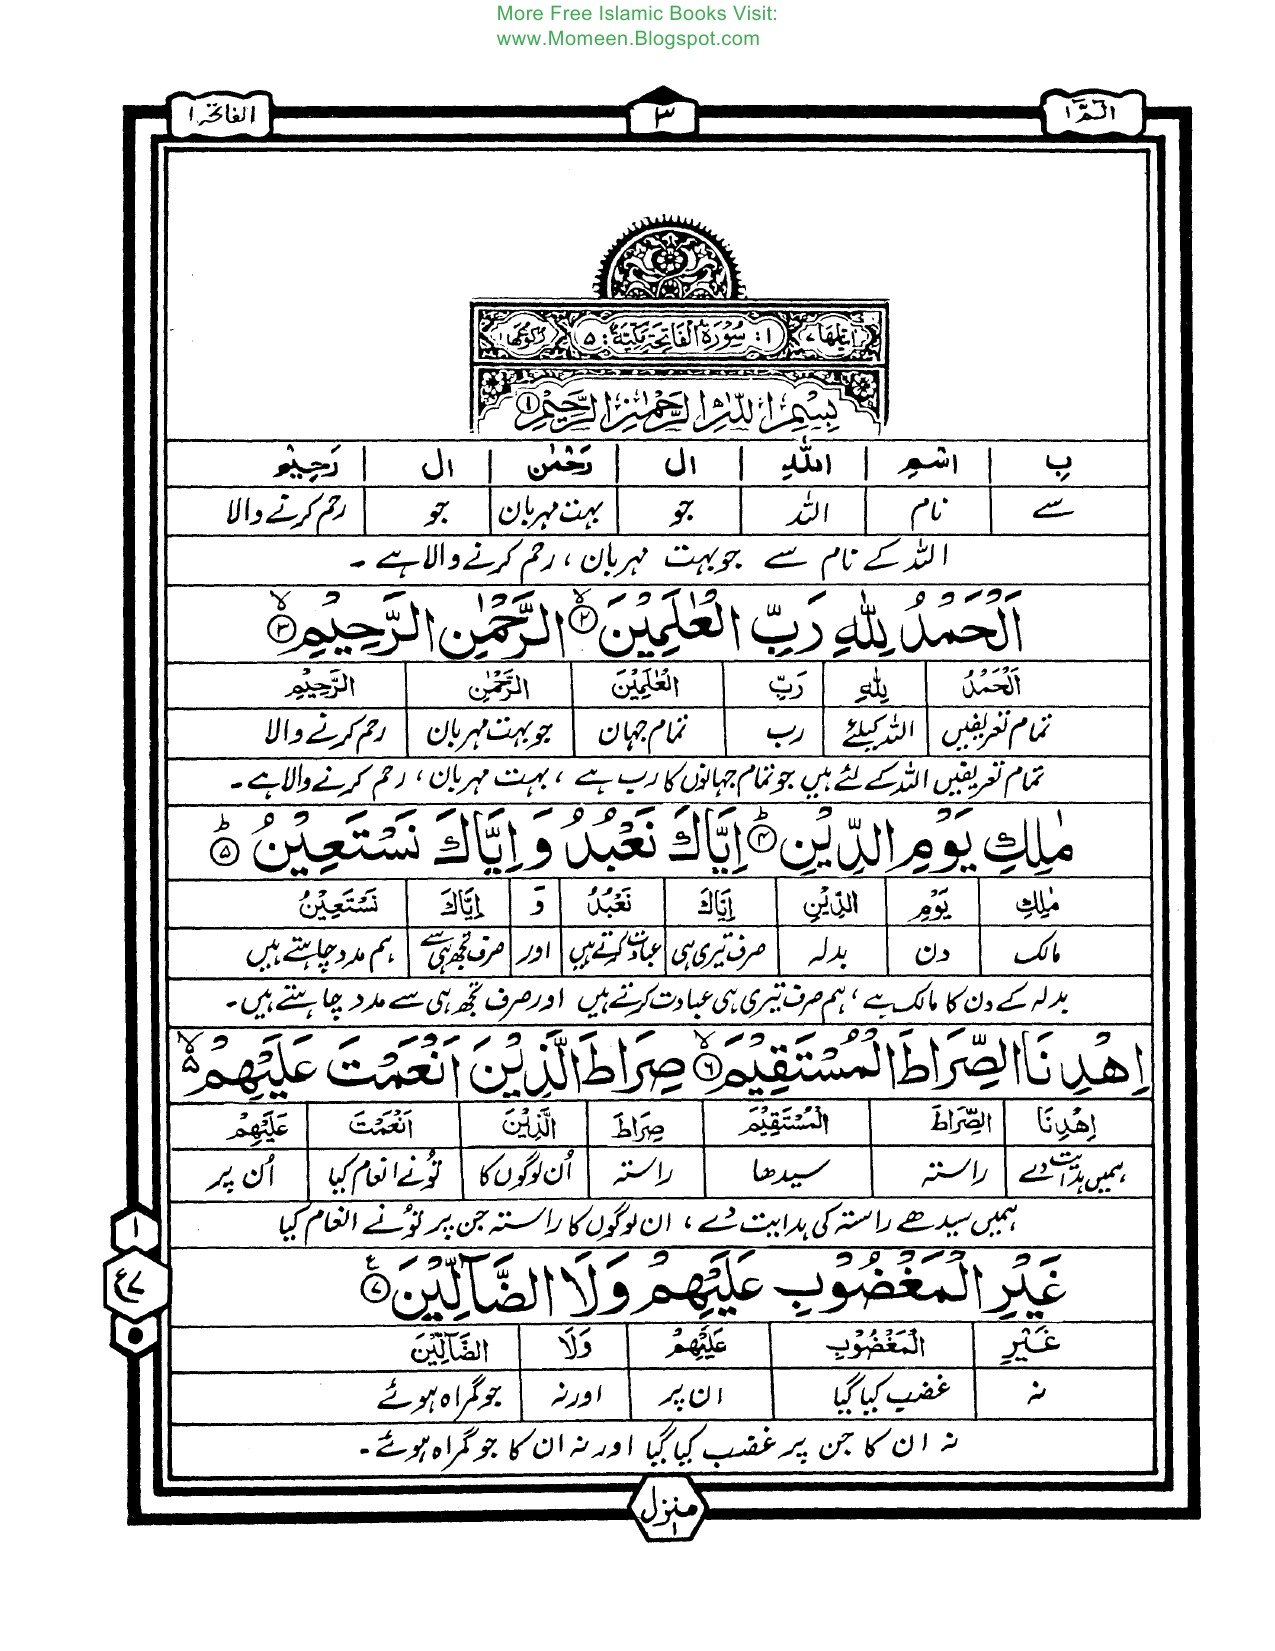 More Free Islamic Books Visit:
www.Momeen.Blogspot.com
الٓمّٓ ١
٣
الفاتحہ ١
اٰیٰتُهَا ٧
١: سُوْرَةُ الْفَاتِحَةِ مَكِّيَّةٌ: ٥
رُكُوْعُهَا ١
بِسْمِ اللّٰهِ الرَّحْمٰنِ الرَّحِیْمِ ①
بِ | اسْمِ | اللّٰهِ | ال | رَحْمٰنِ | ال | رَحِیْمِ
سے | نام | اللہ | جو | بہت مہربان | جو | رحم کرنے والا
اللہ کے نام سے جو بہت مہربان ، رحم کرنے والا ہے ۔
اَلْحَمْدُ لِلّٰهِ رَبِّ الْعٰلَمِیْنَ ۙ② الرَّحْمٰنِ الرَّحِیْمِ ۙ③
اَلْحَمْدُ | لِلّٰهِ | رَبِّ | الْعٰلَمِیْنَ | الرَّحْمٰنِ | الرَّحِیْمِ
تمام تعریفیں | اللہ کیلئے | رب | تمام جہان | جو بہت مہربان | رحم کرنے والا
تمام تعریفیں اللہ کے لئے ہیں جو تمام جہانوں کا رب ہے ، بہت مہربان ، رحم کرنے والا ہے ۔
مٰلِكِ یَوْمِ الدِّیْنِ ؕ④ اِیَّاكَ نَعْبُدُ وَ اِیَّاكَ نَسْتَعِیْنُ ؕ⑤
مٰلِكِ | یَوْمِ | الدِّیْنِ | اِیَّاكَ | نَعْبُدُ | وَ | اِیَّاكَ | نَسْتَعِیْنُ
مالک | دن | بدلہ | صرف تیری ہی | عبادت کرتے ہیں | اور | صرف تجھ ہی سے | ہم مدد چاہتے ہیں
بدلہ کے دن کا مالک ہے ، ہم صرف تیری ہی عبادت کرتے ہیں اور صرف تجھ ہی سے مدد چاہتے ہیں ۔
اِهْدِنَا الصِّرَاطَ الْمُسْتَقِیْمَ ۙ⑥ صِرَاطَ الَّذِیْنَ اَنْعَمْتَ عَلَیْهِمْ ۙ۵
اِهْدِنَا | الصِّرَاطَ | الْمُسْتَقِیْمَ | صِرَاطَ | الَّذِیْنَ | اَنْعَمْتَ | عَلَیْهِمْ
ہمیں ہدایت دے | راستہ | سیدھا | راستہ | اُن لوگوں کا | تُو نے انعام کیا | اُن پر
ہمیں سیدھے راستہ کی ہدایت دے ، ان لوگوں کا راستہ جن پر تُو نے انعام کیا
غَیْرِ الْمَغْضُوْبِ عَلَیْهِمْ وَلَا الضَّآلِّیْنَ ۧ⑦
غَیْرِ | الْمَغْضُوْبِ | عَلَیْهِمْ | وَلَا | الضَّآلِّیْنَ
نہ | غضب کیا گیا | ان پر | اور نہ | جو گمراہ ہوئے
نہ ان کا جن پر غضب کیا گیا اور نہ ان کا جو گمراہ ہوئے ۔
١
ع٧
منزل ١